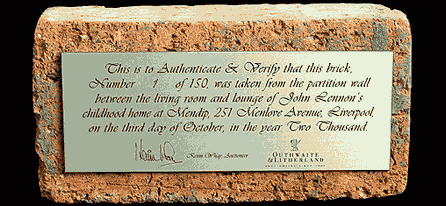 This is to Authenticate & Verify that this brick,
Number 1 of 150, was taken from the partition wall
between the living room and lounge of John Lennon's
childhood home at Mendip, 251 Menlove Avenue, Liverpool,
on the third day of October, in the year Two Thousand.
Auctioneer
OUTHWAITE
& LITHERLAND